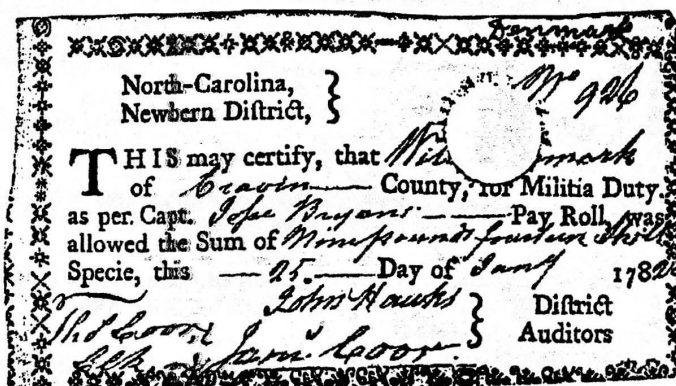 Denmark
North-Carolina,
Newbern Diſtrict,
No 926
THIS may certify, that Will mark
of Cravin County, for Militia Duty
as per. Capt. Bryans Pay Roll, was
allowed the Sum of Nine pounds fourteen Shill
Specie, this 25. Day of Jany 1782
John Hawks
Diſtrict
Auditors
Coor
Jams Coor.